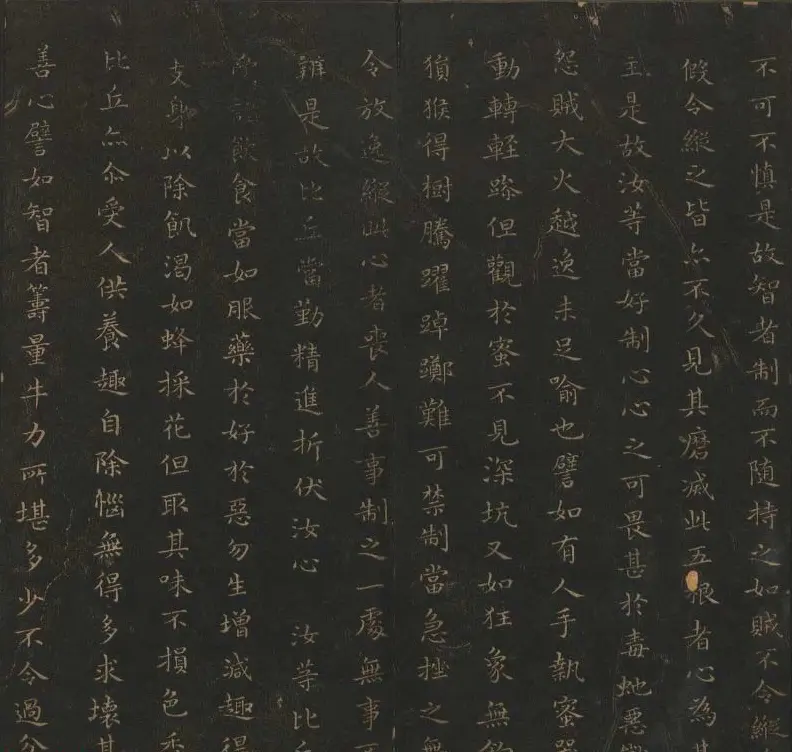 不可不慎是故智者制而不随持之如賊不令縱
假令縱之皆亦不久見其磨滅此五根者心為其
主是故汝等當好制心心之可畏甚於毒虵惡
怨賊大火越逸未足喻也譬如有人手執蜜器
動轉輕躁但觀於蜜不見深坑又如狂象無鈎
猨猴得樹騰躍踔躑難可禁制當急挫之無
令放逸縱此心者喪人善事制之一處無事不
辦是故比丘當勤精進折伏汝心 汝等比丘
受諸飲食當如服藥於好於惡勿生增減趣得
支身以除飢渴如蜂採花但取其味不損色香
比丘亦尒受人供養趣自除惱無得多求壞其
善心譬如智者籌量牛力所堪多少不令過分